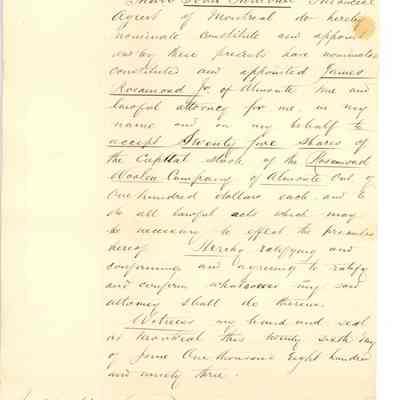 Financial
Agent of Montreal do hereby
nominate constitute and appoint
and by these presents have nominated
constituted and appointed James
Rosamond Jr. of Almonte true and
lawful attorney for me, in my
name and on my behalf to
accept Twenty five shares of
the Capital stock of the Rosamond
Woolen Company of Almonte Ont of
One hundred dollars each and to
do all lawful acts which may
be necessary to effect the premises
hereof. Hereby ratifying and
confirming and agreeing to ratify
and confirm whatsoever my said
attorney shall do therein.
Witness my hand and seal
at Montreal this twenty sixth day
of June One thousand Eight hundred
and ninety three.